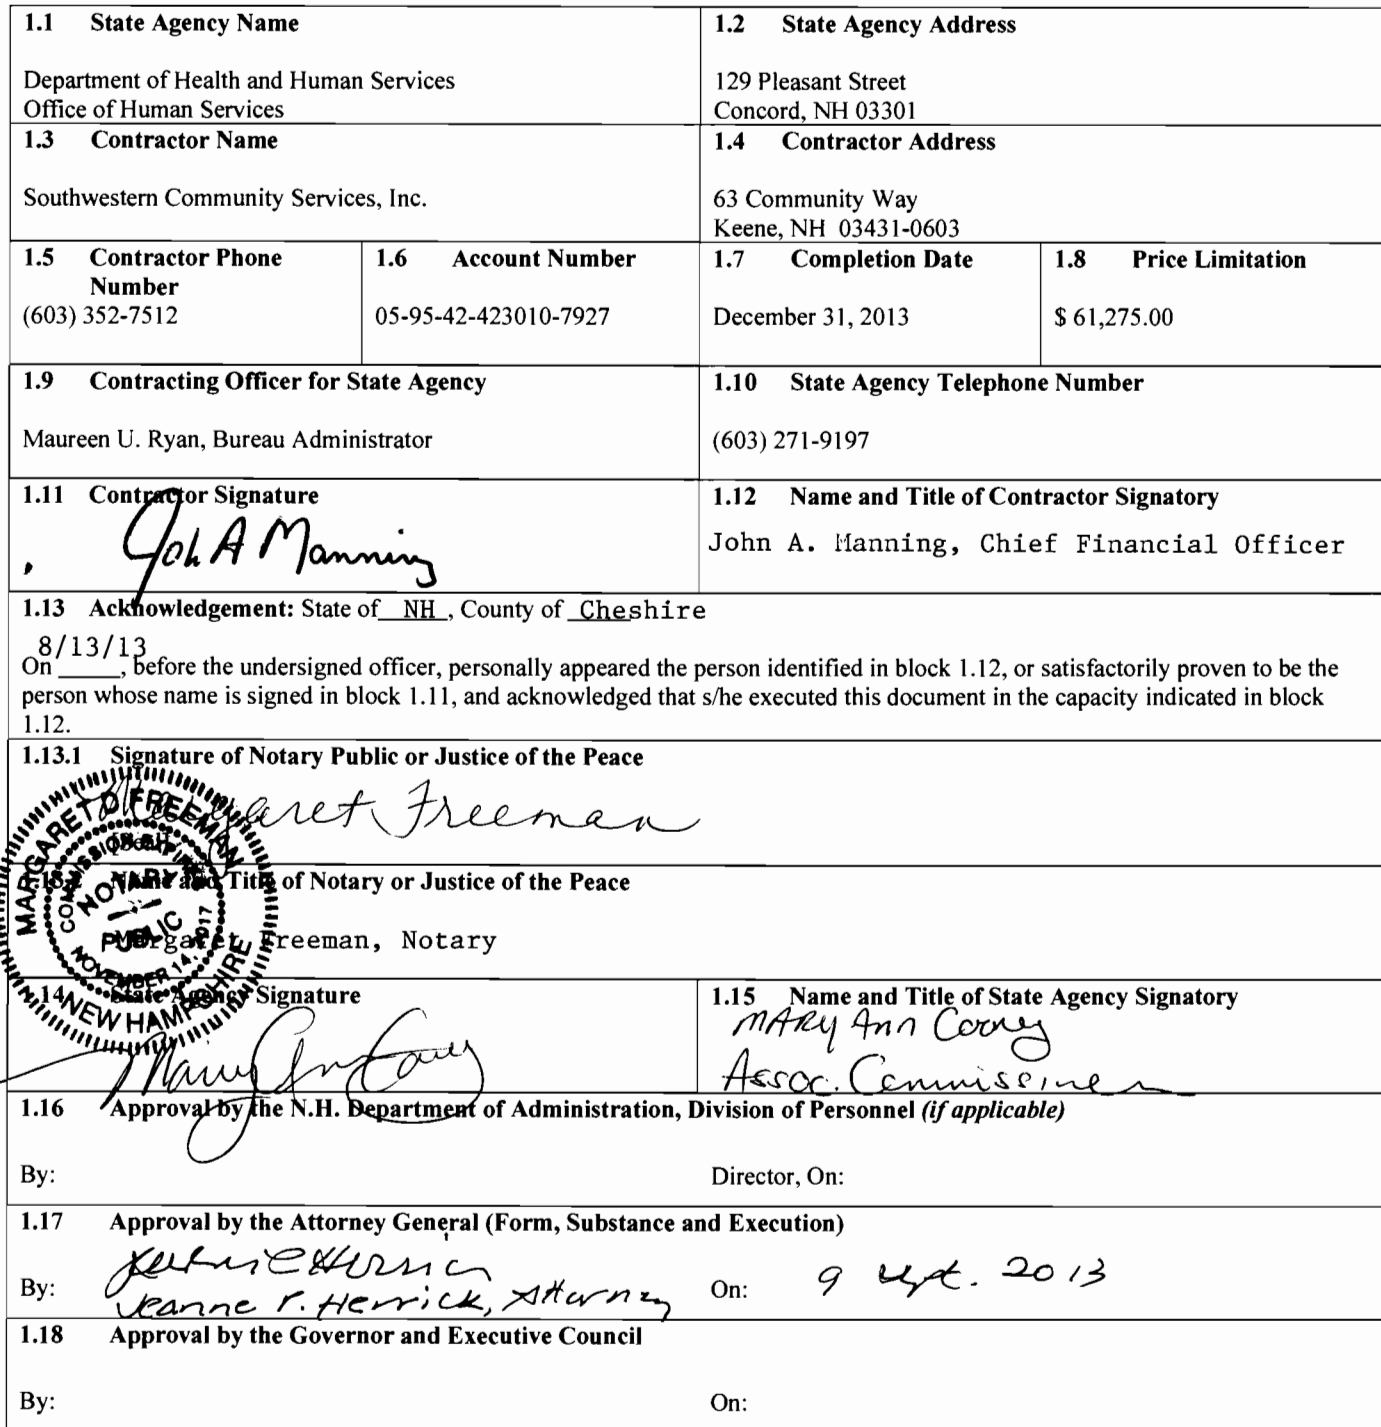 1.1 State Agency Name
1.2 State Agency Address
Department of Health and Human Services
Office of Human Services
129 Pleasant Street
Concord, NH 03301
1.3 Contractor Name
1.4 Contractor Address
Southwestern Community Services, Inc.
63 Community Way
Keene, NH 03431-0603
1.5 Contractor Phone
Number
(603) 352-7512
1.6 Account Number
05-95-42-423010-7927
1.7 Completion Date
December 31, 2013
1.8 Price Limitation
$ 61,275.00
1.9 Contracting Officer for State Agency
Maureen U. Ryan, Bureau Administrator
1.10 State Agency Telephone Number
(603) 271-9197
1.11 Contractor Signature
Joh A Manning
1.12 Name and Title of Contractor Signatory
John A. Manning, Chief Financial Officer
1.13 Acknowledgement: State of NH, County of Cheshire
8/13/13
On _____, before the undersigned officer, personally appeared the person identified in block 1.12, or satisfactorily proven to be the
person whose name is signed in block 1.11, and acknowledged that s/he executed this document in the capacity indicated in block
1.12.
1.13.1 Signature of Notary Public or Justice of the Peace
Margaret Freeman
[Seal]
MARGARET D FREEMAN
COMMISSION EXPIRES
NOTARY
PUBLIC
NOVEMBER 14, 2017
NEW HAMPSHIRE
Name and Title of Notary or Justice of the Peace
Margaret Freeman, Notary
1.14 State Agency Signature
Mary Ann Cooney
1.15 Name and Title of State Agency Signatory
MARY Ann Cooney
Assoc. Commissioner
1.16 Approval by the N.H. Department of Administration, Division of Personnel (if applicable)
By:
Director, On:
1.17 Approval by the Attorney General (Form, Substance and Execution)
By:
Jeanne P. Herrick, Attorney
On: 9 Sept. 2013
1.18 Approval by the Governor and Executive Council
By:
On: